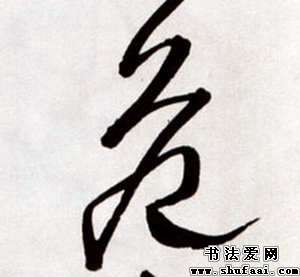 危
书法爱网
www.shufaai.com